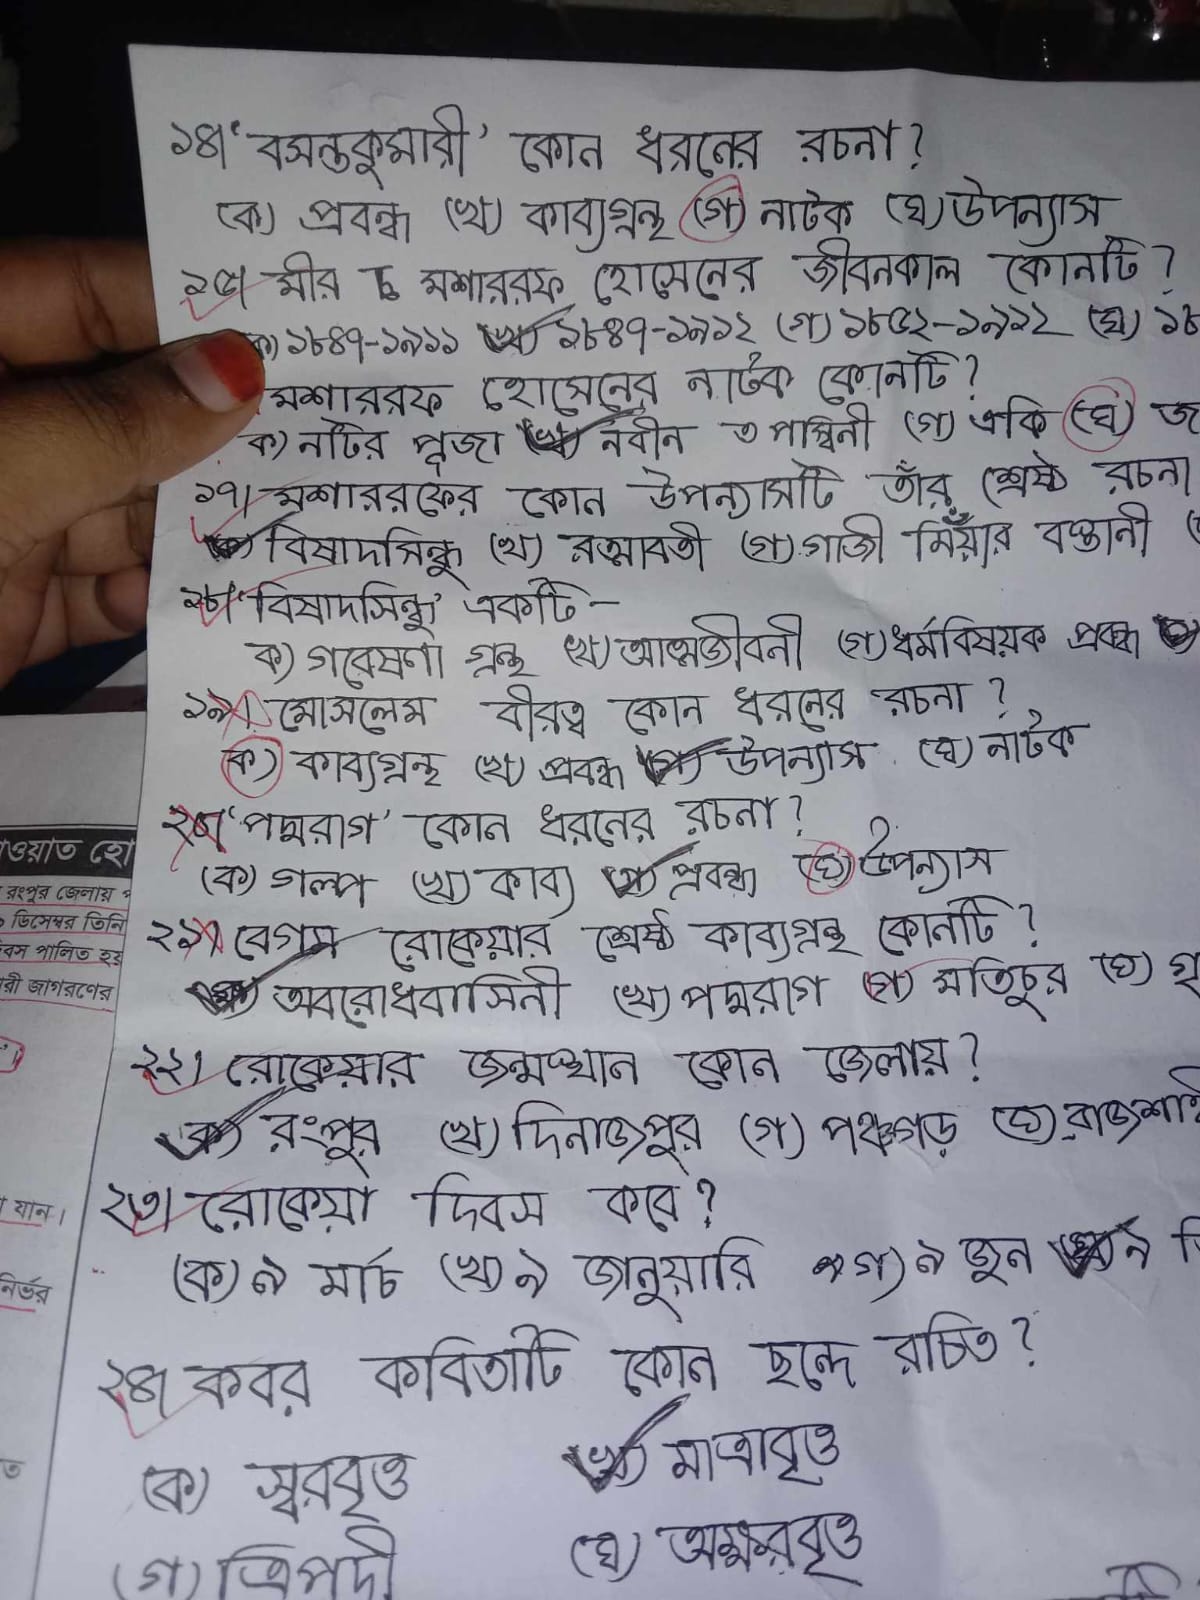 ১৪। 'বসন্তকুমারী' কোন ধরনের রচনা?
(ক) প্রবন্ধ (খ) কাব্যগ্রন্থ (গ) নাটক (ঘ) উপন্যাস
১৫। মীর মশাররফ হোসেনের জীবনকাল কোনটি?
ক) ১৮৪৭-১৯১১ (খ) ১৮৪৭-১৯১২ (গ) ১৮৫২-১৯১২ (ঘ) ১৮
মশাররফ হোসেনের নাটক কোনটি?
ক) নটির পূজা (খ) নবীন তপস্বিনী (গ) একি (ঘ) জ
১৭। মশাররফের কোন উপন্যাসটি তাঁর শ্রেষ্ঠ রচনা
(ক) বিষাদসিন্ধু (খ) রত্নাবতী (গ) গাজী মিয়াঁর বস্তানী
১৮। 'বিষাদসিন্ধু' একটি –
ক) গবেষণা গ্রন্থ (খ) আত্মজীবনী (গ) ধর্মবিষয়ক প্রবন্ধ
১৯। মোসলেম বীরত্ব কোন ধরনের রচনা?
(ক) কাব্যগ্রন্থ (খ) প্রবন্ধ (গ) উপন্যাস (ঘ) নাটক
২০। 'পদ্মরাগ' কোন ধরনের রচনা?
(ক) গল্প (খ) কাব্য (গ) প্রবন্ধ (ঘ) উপন্যাস
২১। বেগম রোকেয়ার শ্রেষ্ঠ কাব্যগ্রন্থ কোনটি?
(ক) অবরোধবাসিনী (খ) পদ্মরাগ (গ) মতিচুর (ঘ) গৃ
২২। রোকেয়ার জন্মস্থান কোন জেলায়?
(ক) রংপুর (খ) দিনাজপুর (গ) পঞ্চগড় (ঘ) রাজশাহি
২৩। রোকেয়া দিবস কবে?
(ক) ৯ মার্চ (খ) ৯ জানুয়ারি (গ) ৯ জুন (ঘ) ৯ ডি
২৪। কবর কবিতাটি কোন ছন্দে রচিত?
(ক) স্বরবৃত্ত (খ) মাত্রাবৃত্ত
(গ) ত্রিপদী (ঘ) অক্ষরবৃত্ত
াওয়াত হো
রংপুর জেলায়
ডিসেম্বর তিনি
বস পালিত হয়
রী জাগরণের
যান।
নির্ভর
ত